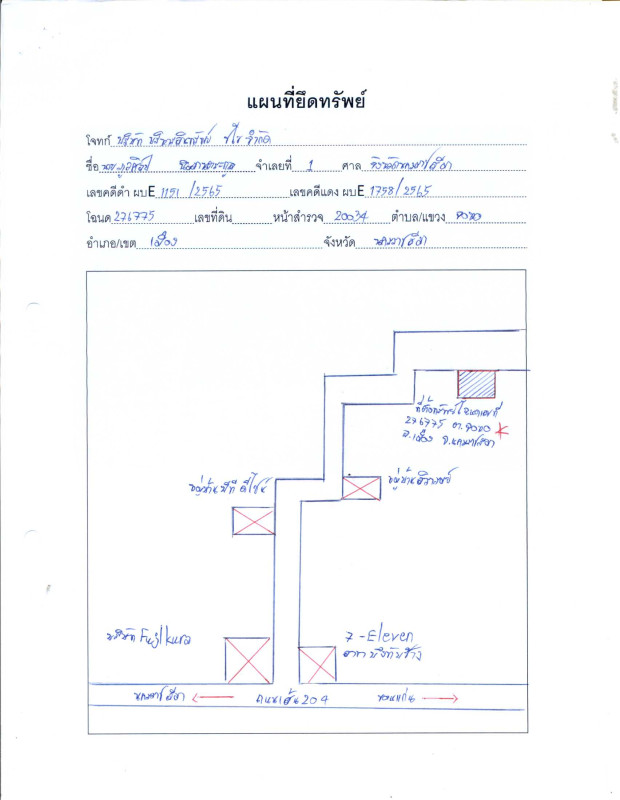 แผนที่ยึดทรัพย์
โจทก์ บริษัท บริหารสินทรัพย์ จำกัด
ชื่อ จำเลยที่ 1 ศาล จังหวัดนครราชสีมา
เลขคดีดำ ผบE 1151 /2565 เลขคดีแดง ผบE 1758/2565
โฉนด 276775 เลขที่ดิน หน้าสำรวจ 20034 ตำบล/แขวง จอหอ
อำเภอ/เขต เมือง จังหวัด นครราชสีมา
ที่ตั้งทรัพย์โฉนดเลขที่
276775 ต.จอหอ
อ.เมือง จ.นครราชสีมา
หมู่บ้าน ดีไซน์
หมู่บ้าน
บริษัท Fujikura
7-Eleven
สาขา บึงทับช้าง
นครราชสีมา ถนนเส้น 204 ขอนแก่น